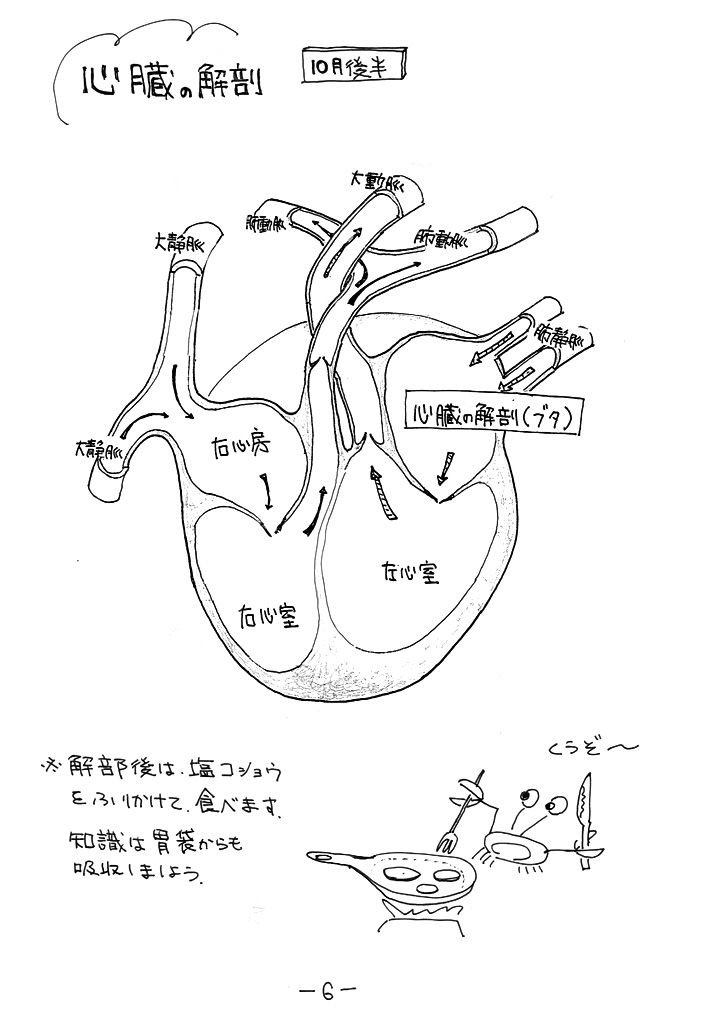 心臓の解剖
10月後半
大動脈
肺動脈
肺動脈
大静脈
肺静脈
心臓の解剖(ブタ)
大静脈
右心房
左心室
右心室
くうぞ〜
※解部後は、塩コショウ
をふりかけて、食べます。
知識は胃袋からも
吸収しましょう。
-6-